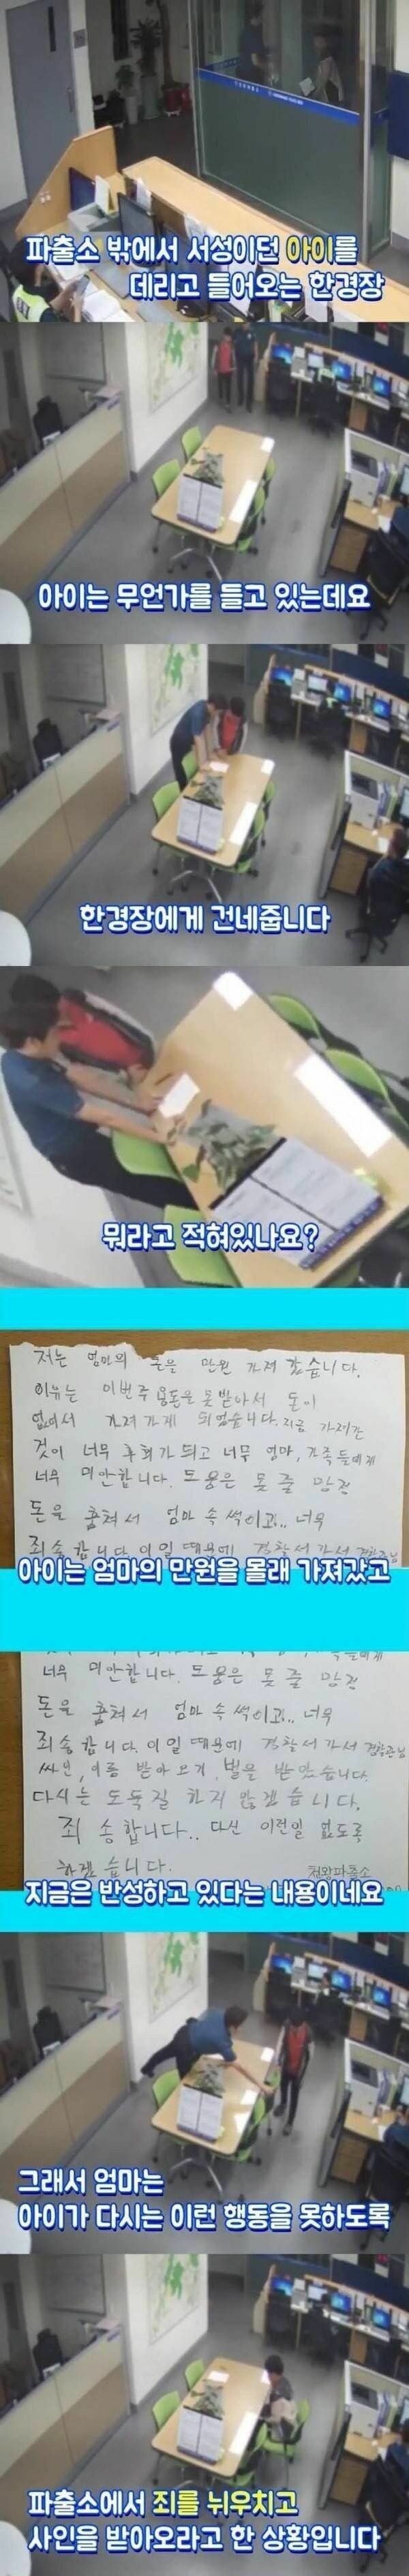 파출소 밖에서 서성이던 아이를
데리고 들어오는 한경장
아이는 무언가를 들고 있는데요
한경장에게 건네줍니다
뭐라고 적혀있나요?
저는 엄마의 돈을 만원 가져 갔습니다.
이유는 이번주 용돈을 못 받아서 돈이
없어서 가져가게 되었습니다. 지금 가져간
것이 너무 후회가 되고 너무 엄마, 가족들에게
너무 미안합니다. 도움은 못 줄 망정
돈을 훔쳐서 엄마 속 썩이고.. 너무
죄송합니다. 이 일 때문에 경찰서 가서 경찰관님
아이는 엄마의 만원을 몰래 가져갔고
너무 미안합니다. 도움은 못 줄 망정
돈을 훔쳐서 엄마 속 썩이고.. 너무
죄송합니다. 이 일 때문에 경찰서 가서 경찰관님
싸인, 이름 받아오기 벌을 받았습니다.
다시는 도둑질 하지 않겠습니다.
죄송합니다.. 다신 이런일 없도록
하겠습니다.
천왕파출소
지금은 반성하고 있다는 내용이네요
그래서 엄마는
아이가 다시는 이런 행동을 못하도록
파출소에서 죄를 뉘우치고
사인을 받아오라고 한 상황입니다